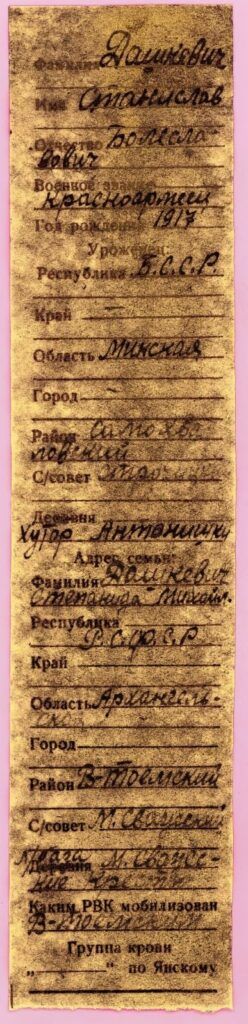 Фамилия Дашкевич
Имя Станислав
Отчество Болесло-
вович
Военное звание
красноармеец
Год рождения 1917
Уроженец:
Республика Б.С.С.Р.
Край
Область Минская
Город
Район Самохва-
ловский
С/совет
Деревня
Хутор
Адрес семьи:
Фамилия Дашкевич
Степанида Михайл.
Республика
Р.С.Ф.С.Р
Край
Область Архангель-
ская
Город
Район В-Тоемский
С/совет
Деревня
Каким РВК мобилизован
В-Тоемский
Группа крови
„ “ по Янскому